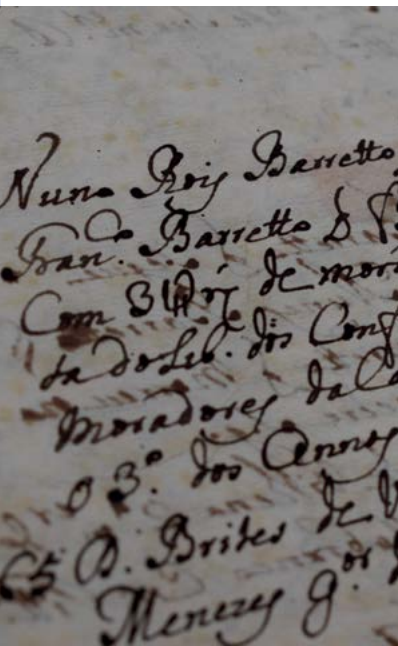 Nuno Roiz Barretto
Franco. Barretto D
Com 3U rj de mora
da do Lib. dos Conf
Moradores da Ca
o 3º. dos Annos
65 D. Brites de V
Menezes gor